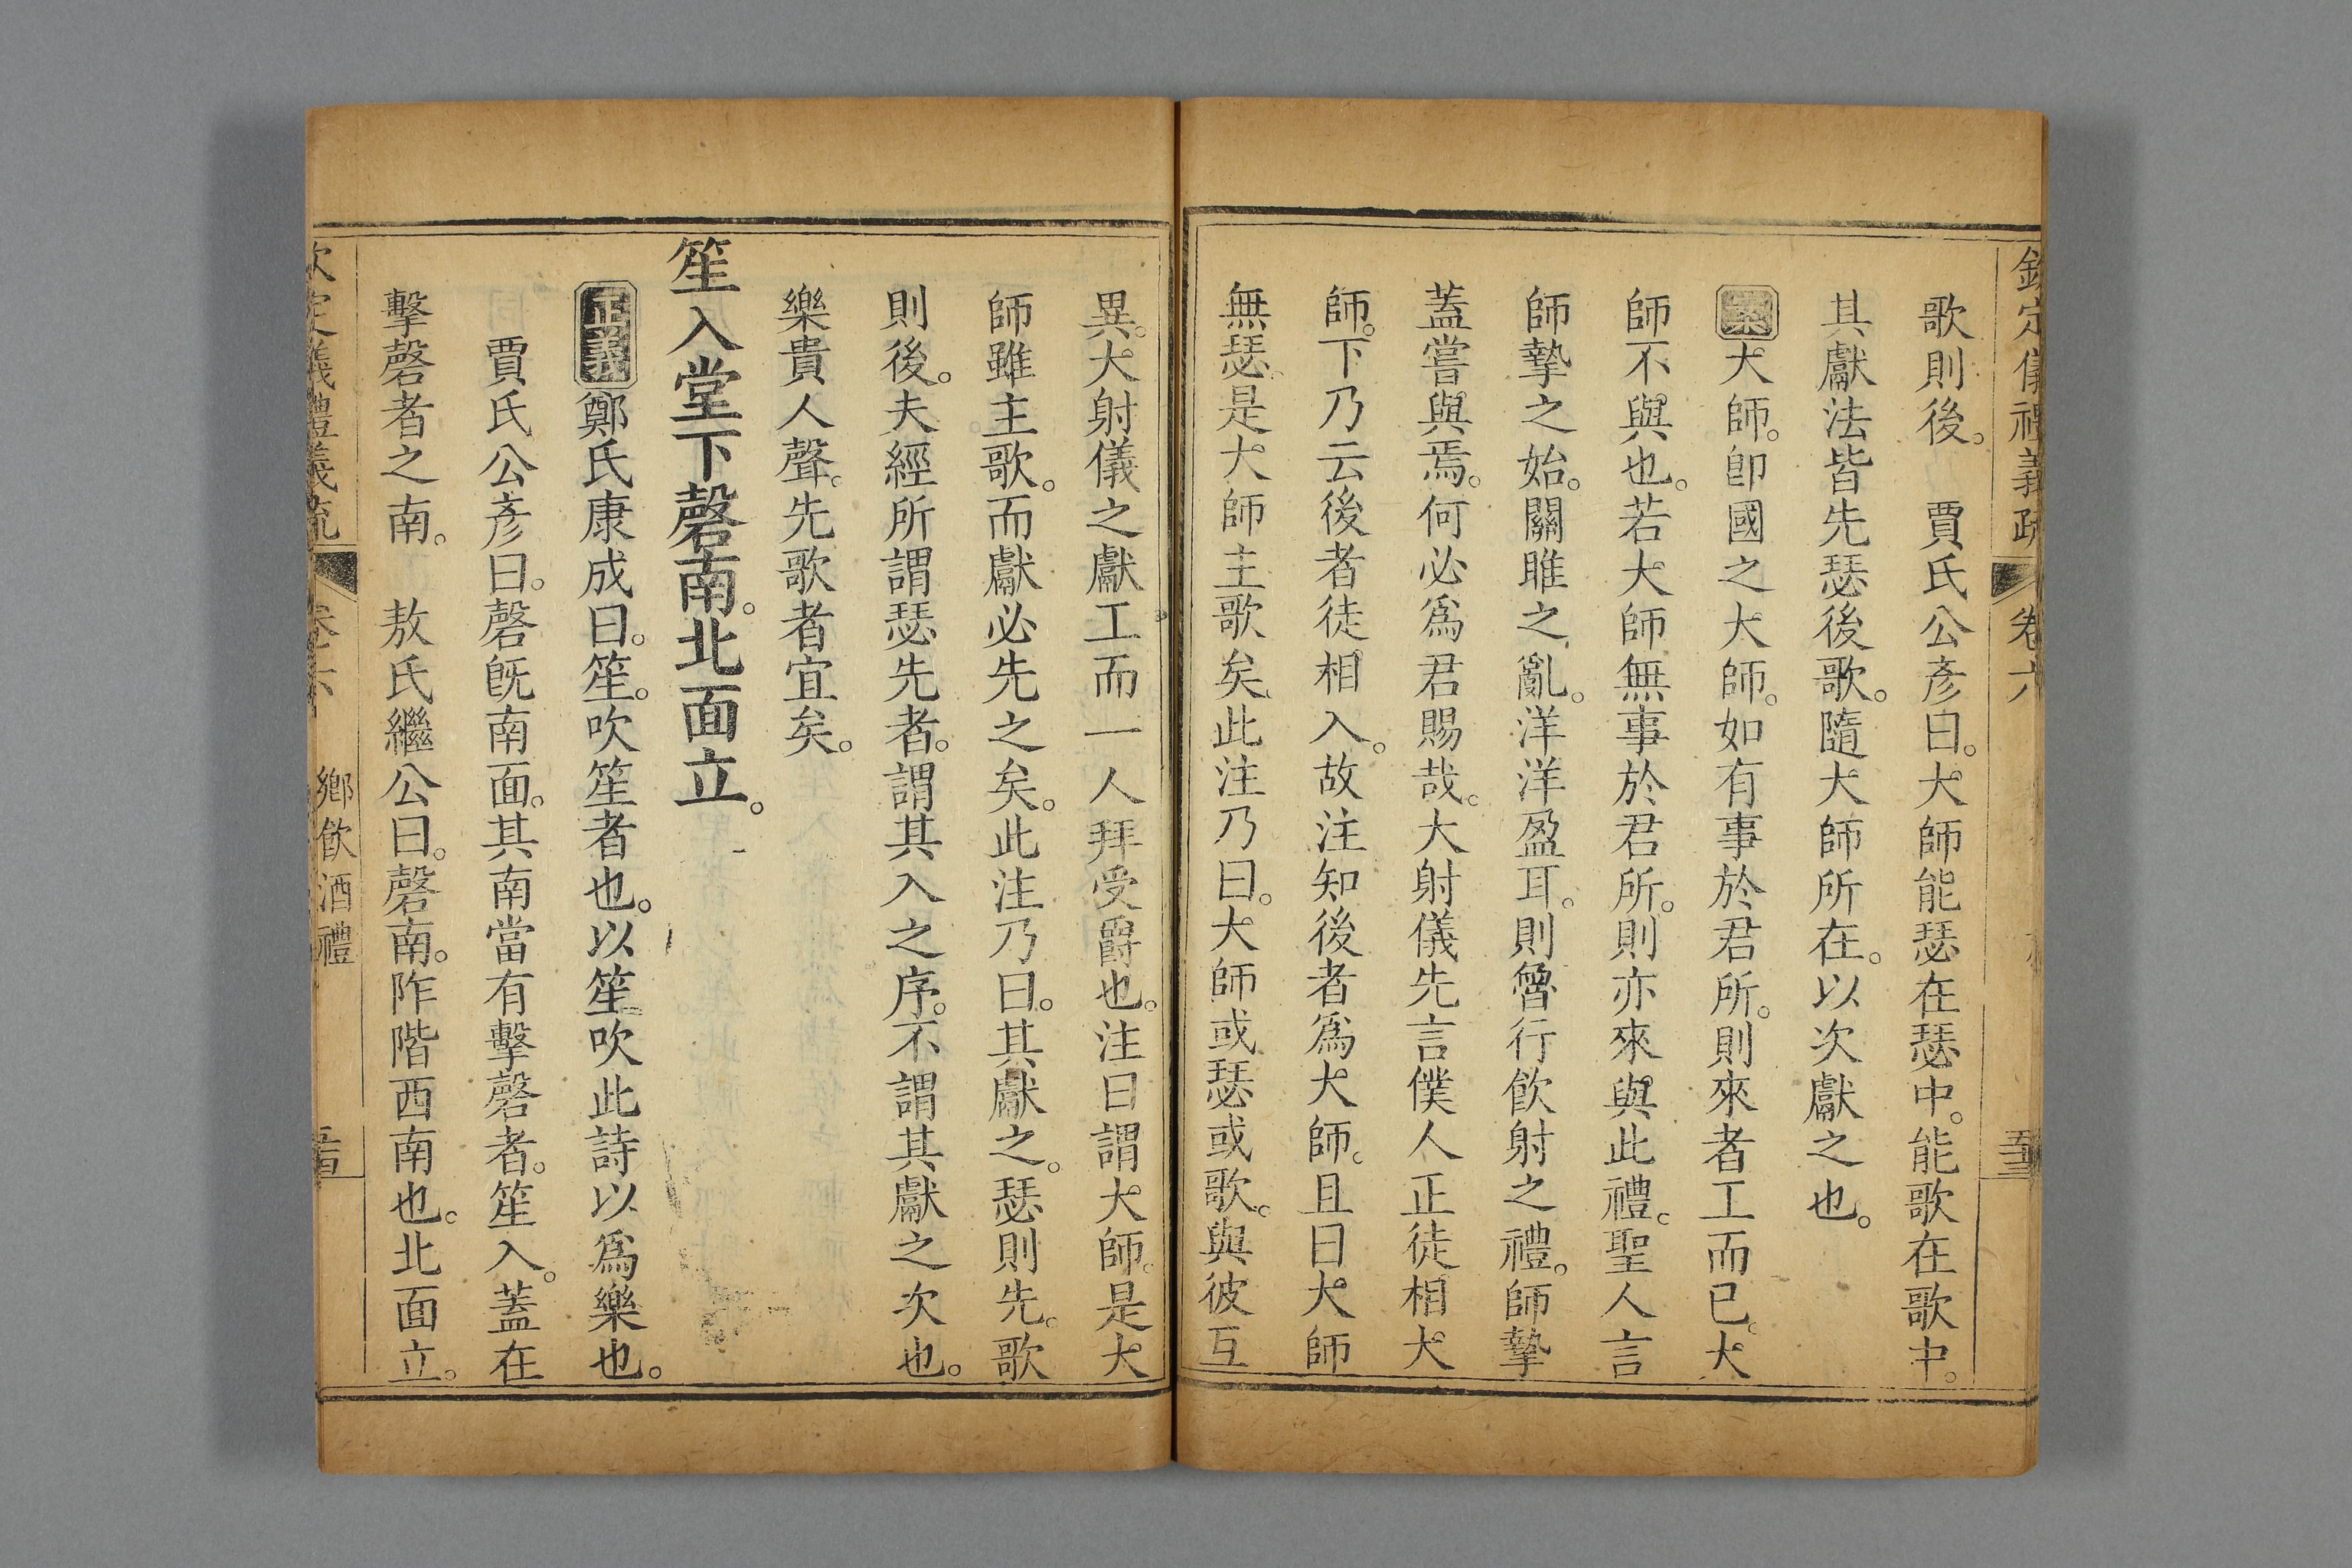 欽定儀禮義疏 卷六
歌則後。 賈氏公彥曰。大師能瑟在瑟中。能歌在歌中。
其獻法皆先瑟後歌。隨大師所在。以次獻之也。
案大師。卽國之大師。如有事於君所。則來者工而已。大
師不與也。若大師無事於君所。則亦來與此禮。聖人言
師摯之始。關雎之亂。洋洋盈耳。則魯行飲射之禮。師摯
蓋嘗與焉。何必爲君賜哉。大射儀先言僕人正徒相大
師。下乃云後者徒相入。故注知後者爲大師。且曰大師
無瑟。是大師主歌矣。此注乃曰。大師或瑟或歌。與彼互
異。大射儀之獻工而一人拜受爵也。注曰謂大師。是大
師雖主歌。而獻必先之矣。此注乃曰。其獻之。瑟則先。歌
則後。夫經所謂瑟先者。謂其入之序。不謂其獻之次也。
樂貴人聲。先歌者宜矣。
笙入堂下磬南。北面立。
正義鄭氏康成曰。笙。吹笙者也。以笙吹此詩以爲樂也。
賈氏公彥曰。磬旣南面。其南當有擊磬者。笙入。蓋在
擊磬者之南。 敖氏繼公曰。磬南。阼階西南也。北面立。
欽定儀禮義疏 卷六 鄉飲酒禮